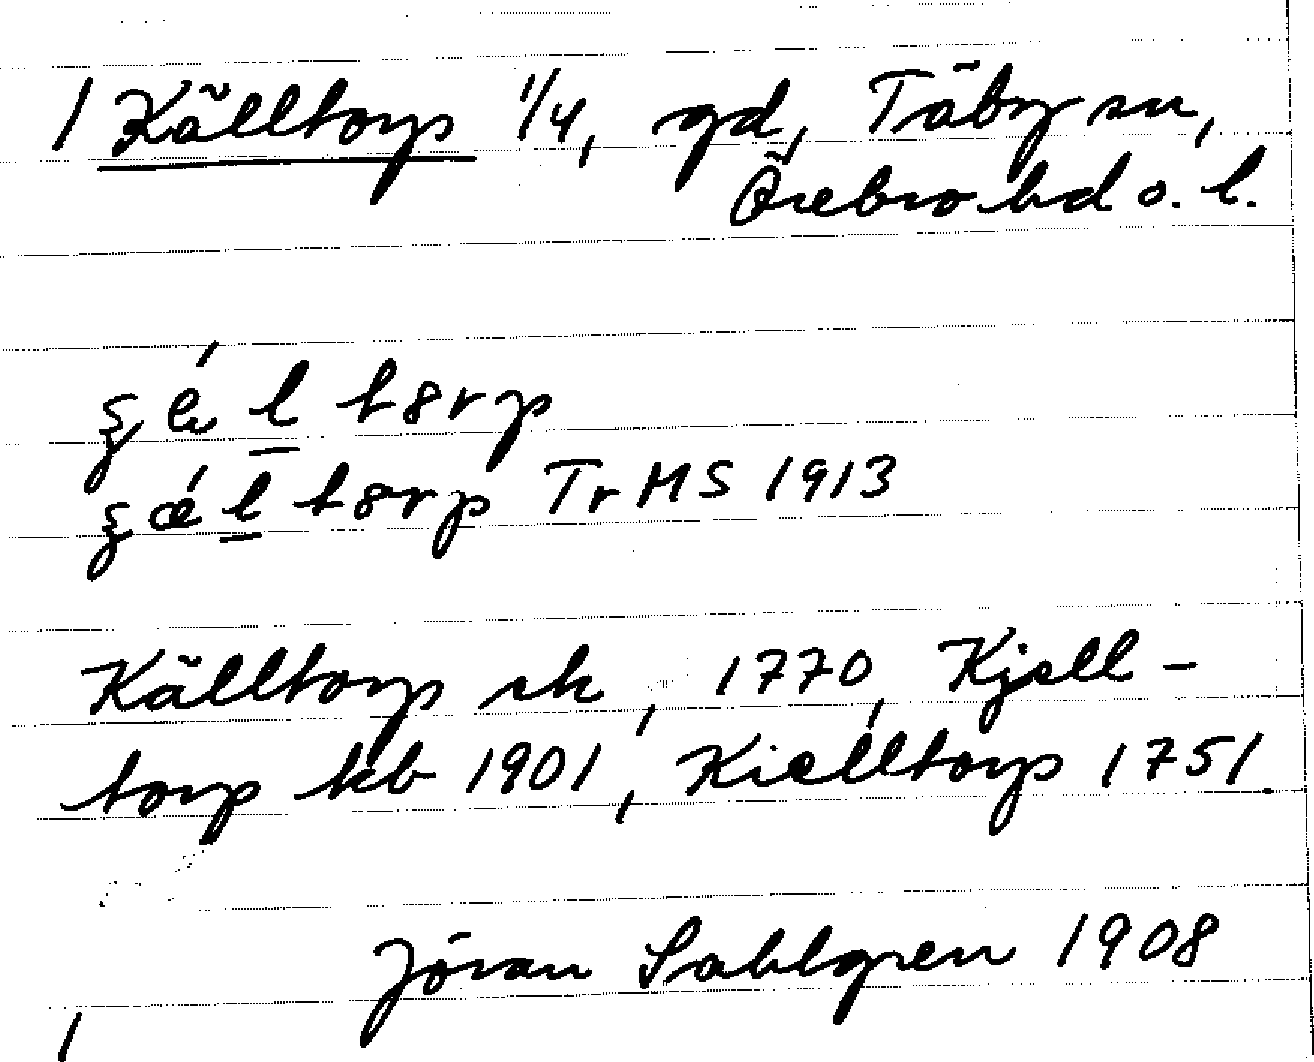 1 Källtorp 1/4, gd, Täby sn,
Örebro hd o. l.
Tr MS 1913
Källtorp sk, 1770, Kjell-
torp kb 1901, Kielltorp 1751.
Jöran Sahlgren 1908